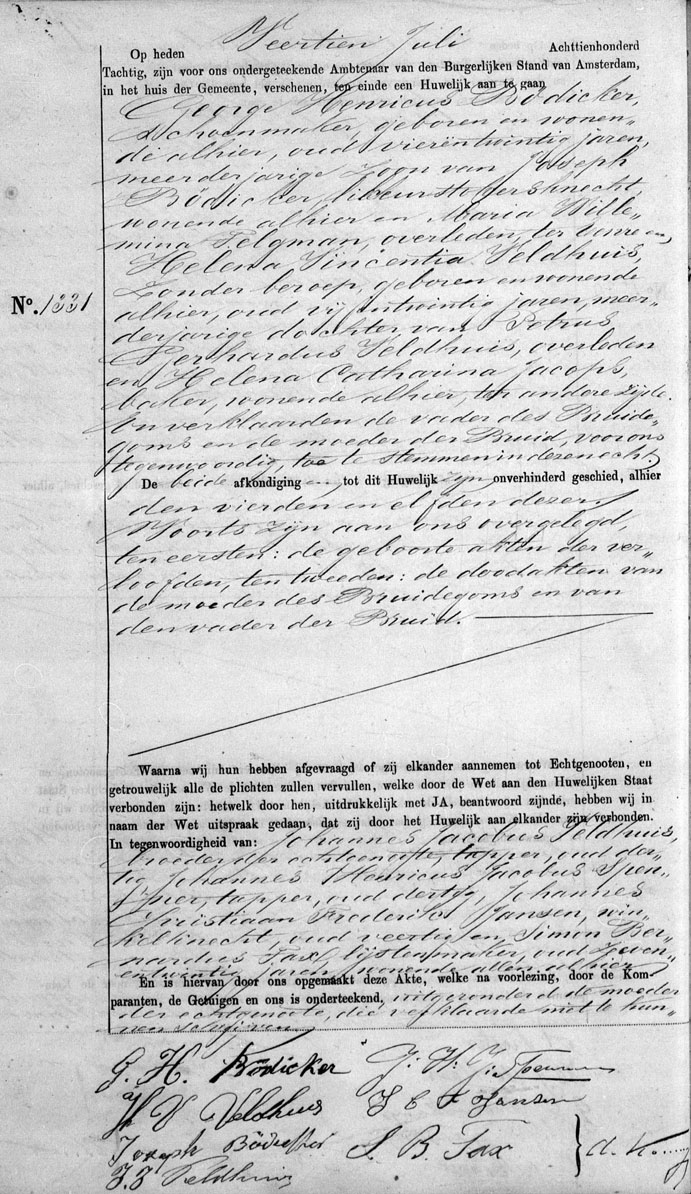 Op heden Veertien Juli Achttienhonderd
Tachtig, zijn voor ons ondergeteekende Ambtenaar van den Burgerlijken Stand van Amsterdam,
in het huis der Gemeente, verschenen, ten einde een Huwelijk aan te gaan
George Henricus Bödicker,
Schoenmaker, geboren en wonen-
de alhier, oud vierentwintig jaren,
meerderjarige Zoon van Joseph
Bödicker, likeurstokersknecht,
wonende alhier en Maria Wille-
mina Telgman, overleden, ter eenre en,
Helena Vincentia Veldhuis,
Zonder beroep, geboren en wonende
alhier, oud vijfentwintig jaren, meer-
derjarige dochter van Petrus
Bernardus Veldhuis, overleden
No. 1331
en Helena Catharina Jacops,
baker, wonende alhier, ter andere zijde.
En verklaarden de vader des Bruide-
goms en de moeder der Bruid, voor ons
tegenwoordig, toe te stemmen in deze echt.
De beide afkondigingen tot dit Huwelijk zijn onverhinderd geschied, alhier
den vierden en elfden dezer.
Voorts zijn aan ons overgelegd,
ten eersten: de geboorte akten der ver-
loofden, ten tweeden: de doodakten van
de moeder des Bruidegoms en van
den vader der Bruid.
Waarna wij hun hebben afgevraagd of zij elkander aannemen tot Echtgenooten, en
getrouwelijk alle de plichten zullen vervullen, welke door de Wet aan den Huwelijken Staat
verbonden zijn: hetwelk door hen, uitdrukkelijk met JA, beantwoord zijnde, hebben wij in
naam der Wet uitspraak gedaan, dat zij door het Huwelijk aan elkander zijn verbonden.
In tegenwoordigheid van: Johannes Jacobus Veldhuis,
broeder der echtgenoote, tapper, oud der-
tig, Johannes Henricus Jacobus Spen-
tapper, oud dertig, Johannes
Christiaan Frederik Jansen, win-
kelknecht, oud veertig en Simon Ber-
nardus Fax, lijstenmaker, oud Zeven-
entwintig jaren, wonende allen alhier
En is hiervan door ons opgemaakt deze Akte, welke na voorlezing, door de Kom-
paranten, de Getuigen en ons is onderteekend, uitgezonderd de moeder
der echtgenoote, die verklaarde niet te kun-
nen schrijven.
G. H. Bödicker J. H. J.
H V Veldhuis J C F Jansen
Joseph Bödicker S. B. Fax
J. J. Veldhuis